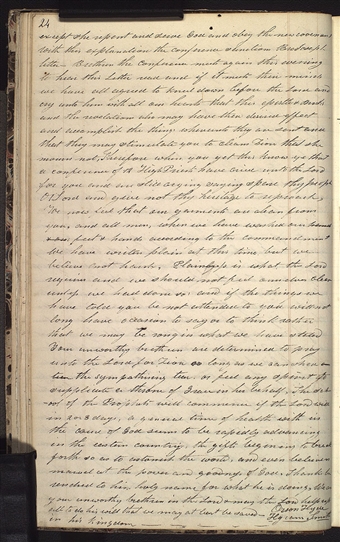 24
except she repent and serve God and obey the new covenant
with this explanation the conference sanctions Bro Joseph's
letter— Brethren the conference meet again this evening
to hear this letter read and if it meets their minds
we have all agreed to kneel down before the Lord and
cry unto him with all our hearts that this epistle and
and the revelation also may have their desired effect
and accomplish the thing whereunto they are sent and
that they may stimulate you to cleanse Zion that she
mourn not. Therefore when you get this know ye that
a conference of 12 High Priests have cried unto the Lord
for you and are still crying saying spare thy people
O Lord and give not thy heritage to reproach.
We now feel that our garments are clean from
you and all men, when we have washed our
feet & hands according to the commandment
We have written plain at this time but we
believe not harsh. Plainness is what the Lord
requires and we should not feel ourselves clear
unless we had done so, and if the things we
have told you be not attended to you will not
long have occasion to say or to think rather
that we may be wrong in what we have stated
Your unworthy brethren are determined to pray
unto the Lord for Zion as long as we can shed
the sympathizing tear, or feel any spirit to
supplicate a throne of Grace in her behalf. The school
of the Prophets will commence if the Lord will
in 2 or 3 days, a general time of health with us
the cause of God seems to be rapidly advancing
in the eastern country, the gifts begin to break
forth so as to astonish the world, and even believers
marvel at the power and goodness of God. Thanks be
rendered to his holy name for what he is doing. We are
your unworthy brethren in the Lord & may the Lord help us
all to do his will that we may at last be saved—
in his kingdom
Orson Hyde
Hyrum Smith